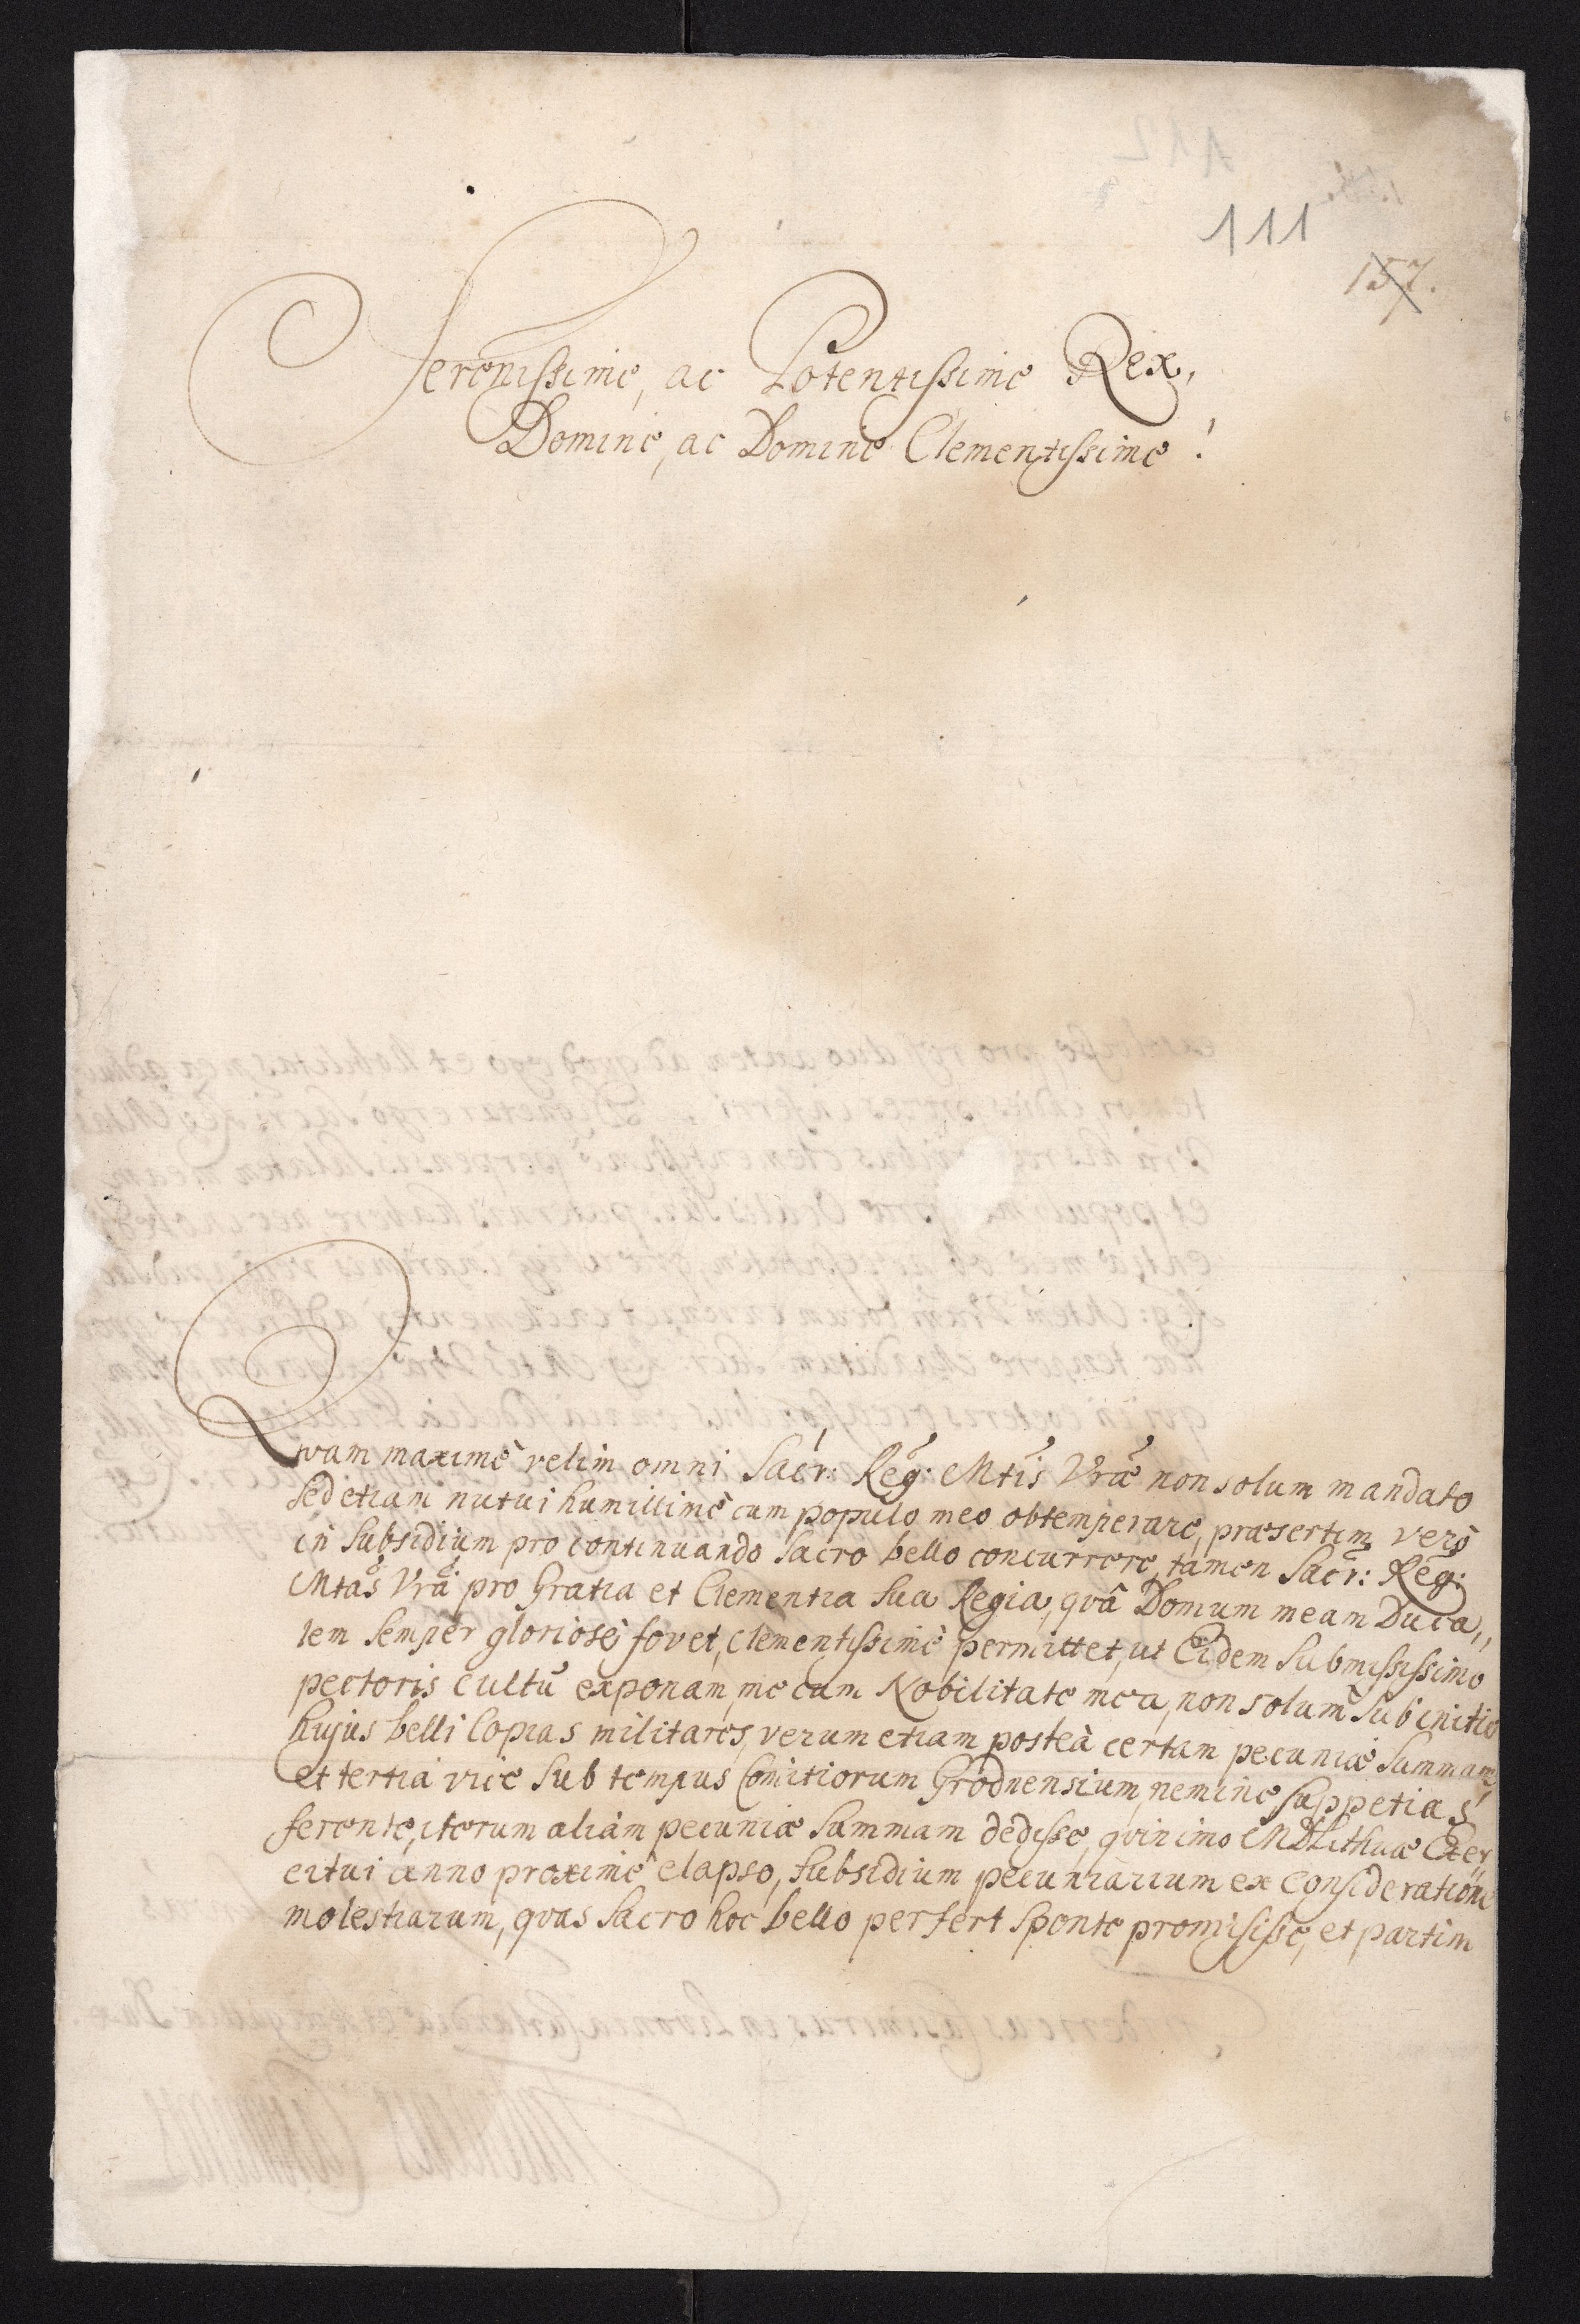 111
157.
Serenissime, ac Potentissime Rex,
Domine, ac Domine Clementissime!
Qvam maximè velim omni Sacr: Reg: Mtis Vræ non solum mandato
sed etiam nutui humillimè cum populo meo obtemperare, præsertim verò
in subsidium pro continuando sacro bello concurrere, tamen Sacr: Reg:
Mtas Vra pro Gratia et Clementia sua Regia, qvâ Domum meam Duca„
lem semper gloriosè fovet, clementissimè permittet, ut Eidem submississimo
pectoris cultu exponam, me cum Nobilitate mea, non solum sub initio
hujus belli Copias militares, verum etiam posteà certam pecuniæ summam,
et tertiâ vice sub tempus Comitiorum Grodnensium, nemine suppetias
ferente, iterum aliam pecuniæ summam dedisse, qvin imo MDLithuæ Exer„
citui anno proximè elapso, subsidium pecuniarium ex consideratione
molestiarum, qvas sacro hoc bello perfert sponte promisisse, et partim